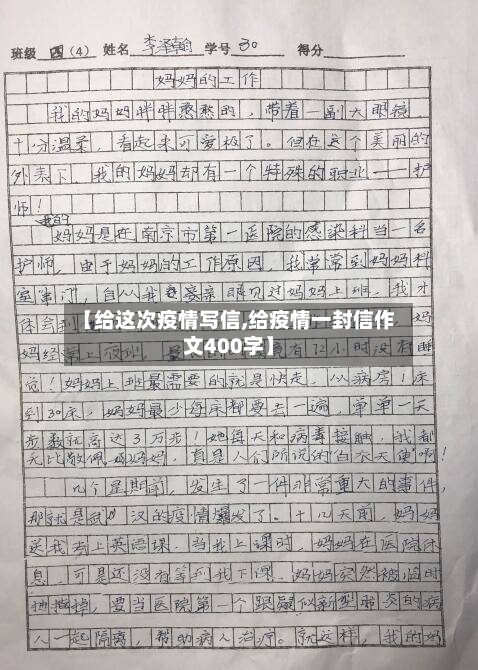 班级 四（4） 姓名 李泽翰 学号 30 得分
妈妈的工作
我的妈妈胖胖憨憨的，带着一副大眼镜，
十分温柔，看起来可爱极了。但在这个美丽的
外表下，我的妈妈却有一个特殊的职业——护
师！
我的
妈妈是在南京市第一医院的感染科当一名
护师，由于妈妈的工作原因，我常常到妈妈科
室串门，自从我亲眼见过妈妈上班，我才
体会到
【给这次疫情写信,给疫情一封信作
文400字】
妈经常上夜班，有12小时没有睡
觉！妈妈上班最需要的就是快走，从病房1床
到30床，妈妈最少每床都要去一遍，单单一天
步数就高达3万步！她每天和病毒接触，我都
无比敬佩妈妈，真是人们所说的“白衣天使”啊！
几个星期前，发生了一件非常重大的事件，
那就是武汉的疫情爆发了。十几天前，妈妈
送我去上英语课，当我上课时，妈妈在医院休
息，可是还没有等到我下课，妈妈突然被临时
，要当医院第一个跟疑似新型肺炎的病
人一起隔离，帮助病人治疗。就这样，我的妈